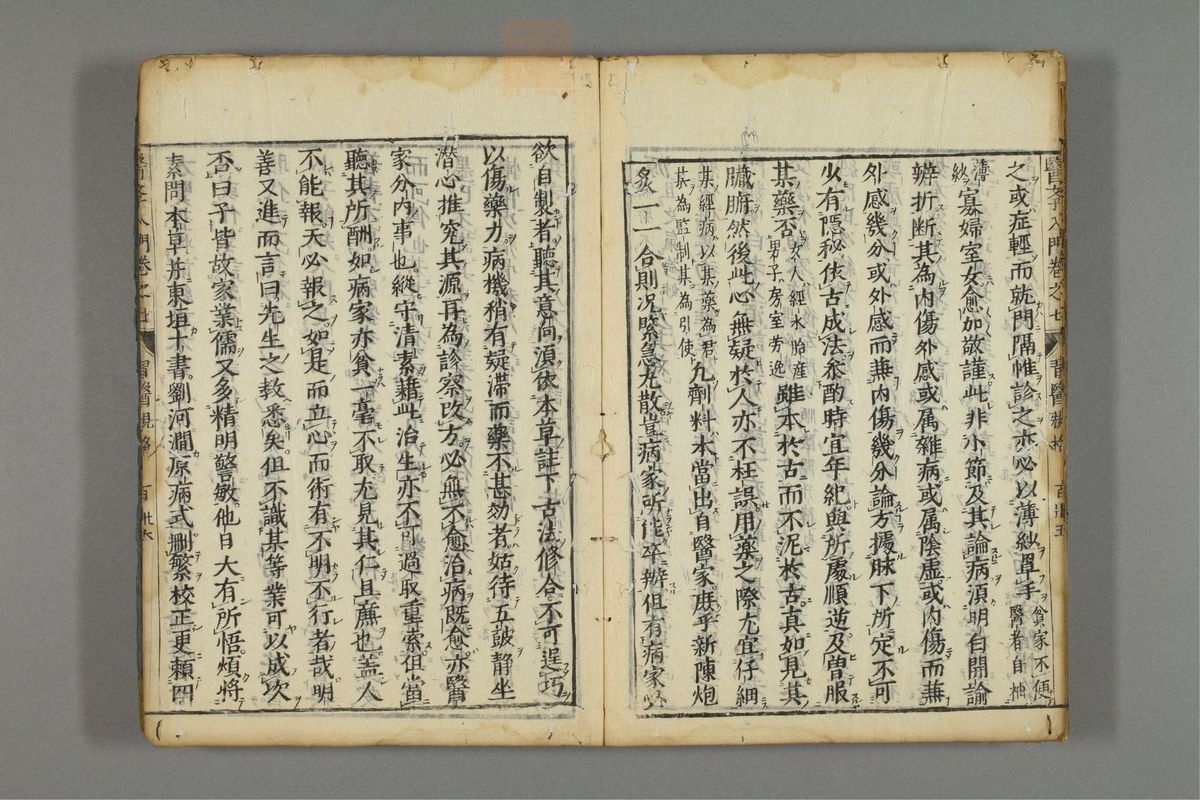 醫學入門卷之七 習醫規格 百卅五
之或症輕而就門隔帷診之亦必以薄紗罩手貧家不便醫者自袖
薄紗寡婦室女愈加敬謹此非小節及其論病須明白開諭
辨折斷其為内傷外感或属雜病或属陰虛或内傷而兼
外感幾分或外感而兼内傷幾分論方據脉下所定不可
少有隱秘依古成法叅酌時宜年紀與所處順逆及曽服
某藥否女人經水胎産男子房室労逸雖本於古而不泥於古真如見其
臟腑然後此心無疑於人亦不枉誤用藥之際尤宜仔細
某經病以某藥為君某為監制某為引使九劑料本當出自醫家庶乎新陳炮
炙一一合則况緊急尤散豈病家所能卒辨但有病家必
欲自製者聽其意向湏依本草註下古法修合不可逞巧
以傷藥力病機稍有疑滞而藥不甚効者姑待五皷静坐
潜心推究其源再為診察改方必無不愈治病既愈亦醫
家分内事也縱守清素藉此治生亦不可過取重索但當
聽其所酬如病家亦貪一毫不取尤見其仁且廉也盖人
不能報天必報之如是而立心而術有不明不行者哉明
善又進而言曰先生之教悉矣但不識某等業可以成次
否曰子皆故家業儒又多精明警敏他日大有所悟煩將
素問本草并東垣十書劉河澗原病式删繁校正更頼四
醫學入門卷之七 習醫規格 百卅六